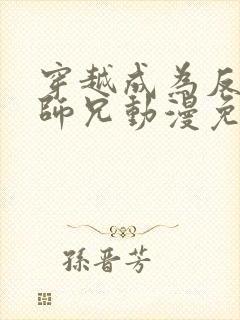 穿越成為反
師兄動漫免
孫晋芳